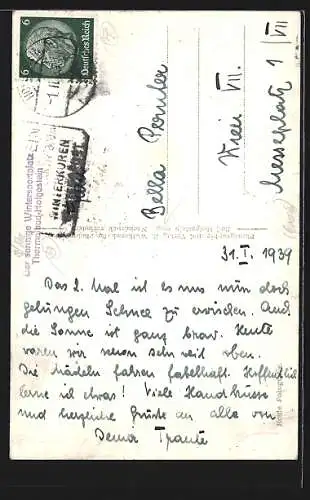 6 Deutsches Reich 6
Der sonnige Wintersportplatz
Thermalbad Hofgastein
WINTERKUREN
Bella Pernter
Wien VII.
Messeplatz 1/VII
31. I. 1939
Das 2. Mal ist es uns nun doch
gelungen Schnee zu erwischen. Auch
die Sonne ist ganz brav. Heute
waren wir schon sehr weit oben.
Die Mädeln fahren fabelhaft. Hoffentlich
lerne ich etwas! Viele Handküsse
und herzliche Grüße an alle von
Deiner Traute